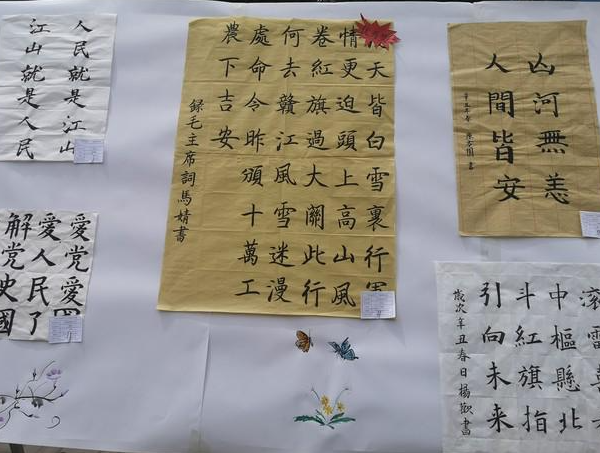 人民就是江山
江山就是人民
天皆白雪裏行軍
情更迫頭上高山風
卷紅旗過大關此行
何去贛江風雪迷漫
處命令昨頒十萬工
農下吉安
録毛主席詞馬婧書
山河無恙
人間皆安
愛党愛
愛人民了
解党史國
滚雷
中樞懸北
斗紅旗指
引向未来
歲次辛丑春日楊歡書